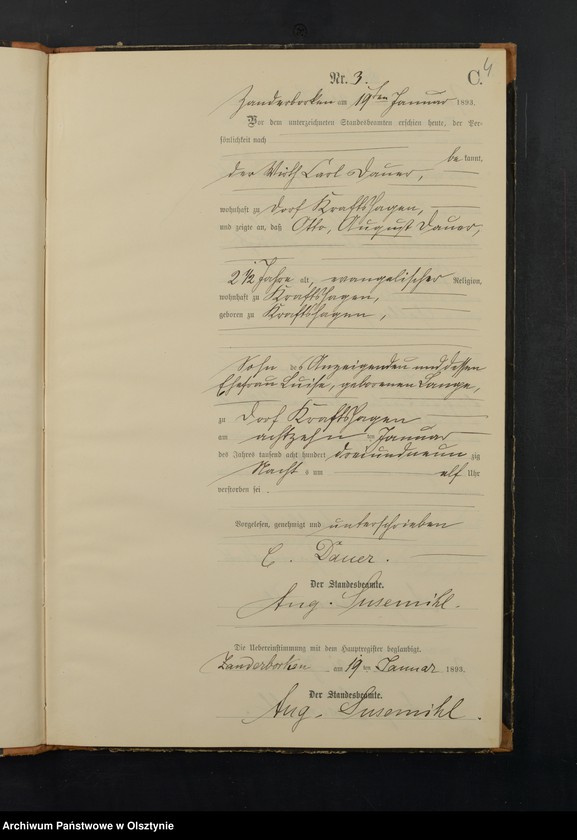 4
C.
Nr. 3.
Zanderborken am 19ten Januar 1893.
Vor dem unterzeichneten Standesbeamten erschien heute, der Per-
sönlichkeit nach
be kannt,
der Wirth Carl Dauer,
wohnhaft zu Dorf Kraftshagen,
und zeigte an, daß Otto, August Dauer,
2 1/2 Jahre alt, evangelischer Religion,
wohnhaft zu Kraftshagen,
geboren zu Kraftshagen,
Sohn des Anzeigenden und dessen
Ehefrau Luise, geborenen Lange,
zu Dorf Kraftshagen
am achtzehn ten Januar
des Jahres tausend acht hundert dreiundneun zig
Nacht s um elf Uhr
verstorben sei.
Vorgelesen, genehmigt und unterschrieben
C. Dauer.
Der Standesbeamte.
Aug. Susemihl.
Die Uebereinstimmung mit dem Hauptregister beglaubigt.
Zanderborken am 19 ten Januar 1893.
Der Standesbeamte.
Aug. Susemihl.
Archiwum Państwowe w Olsztynie